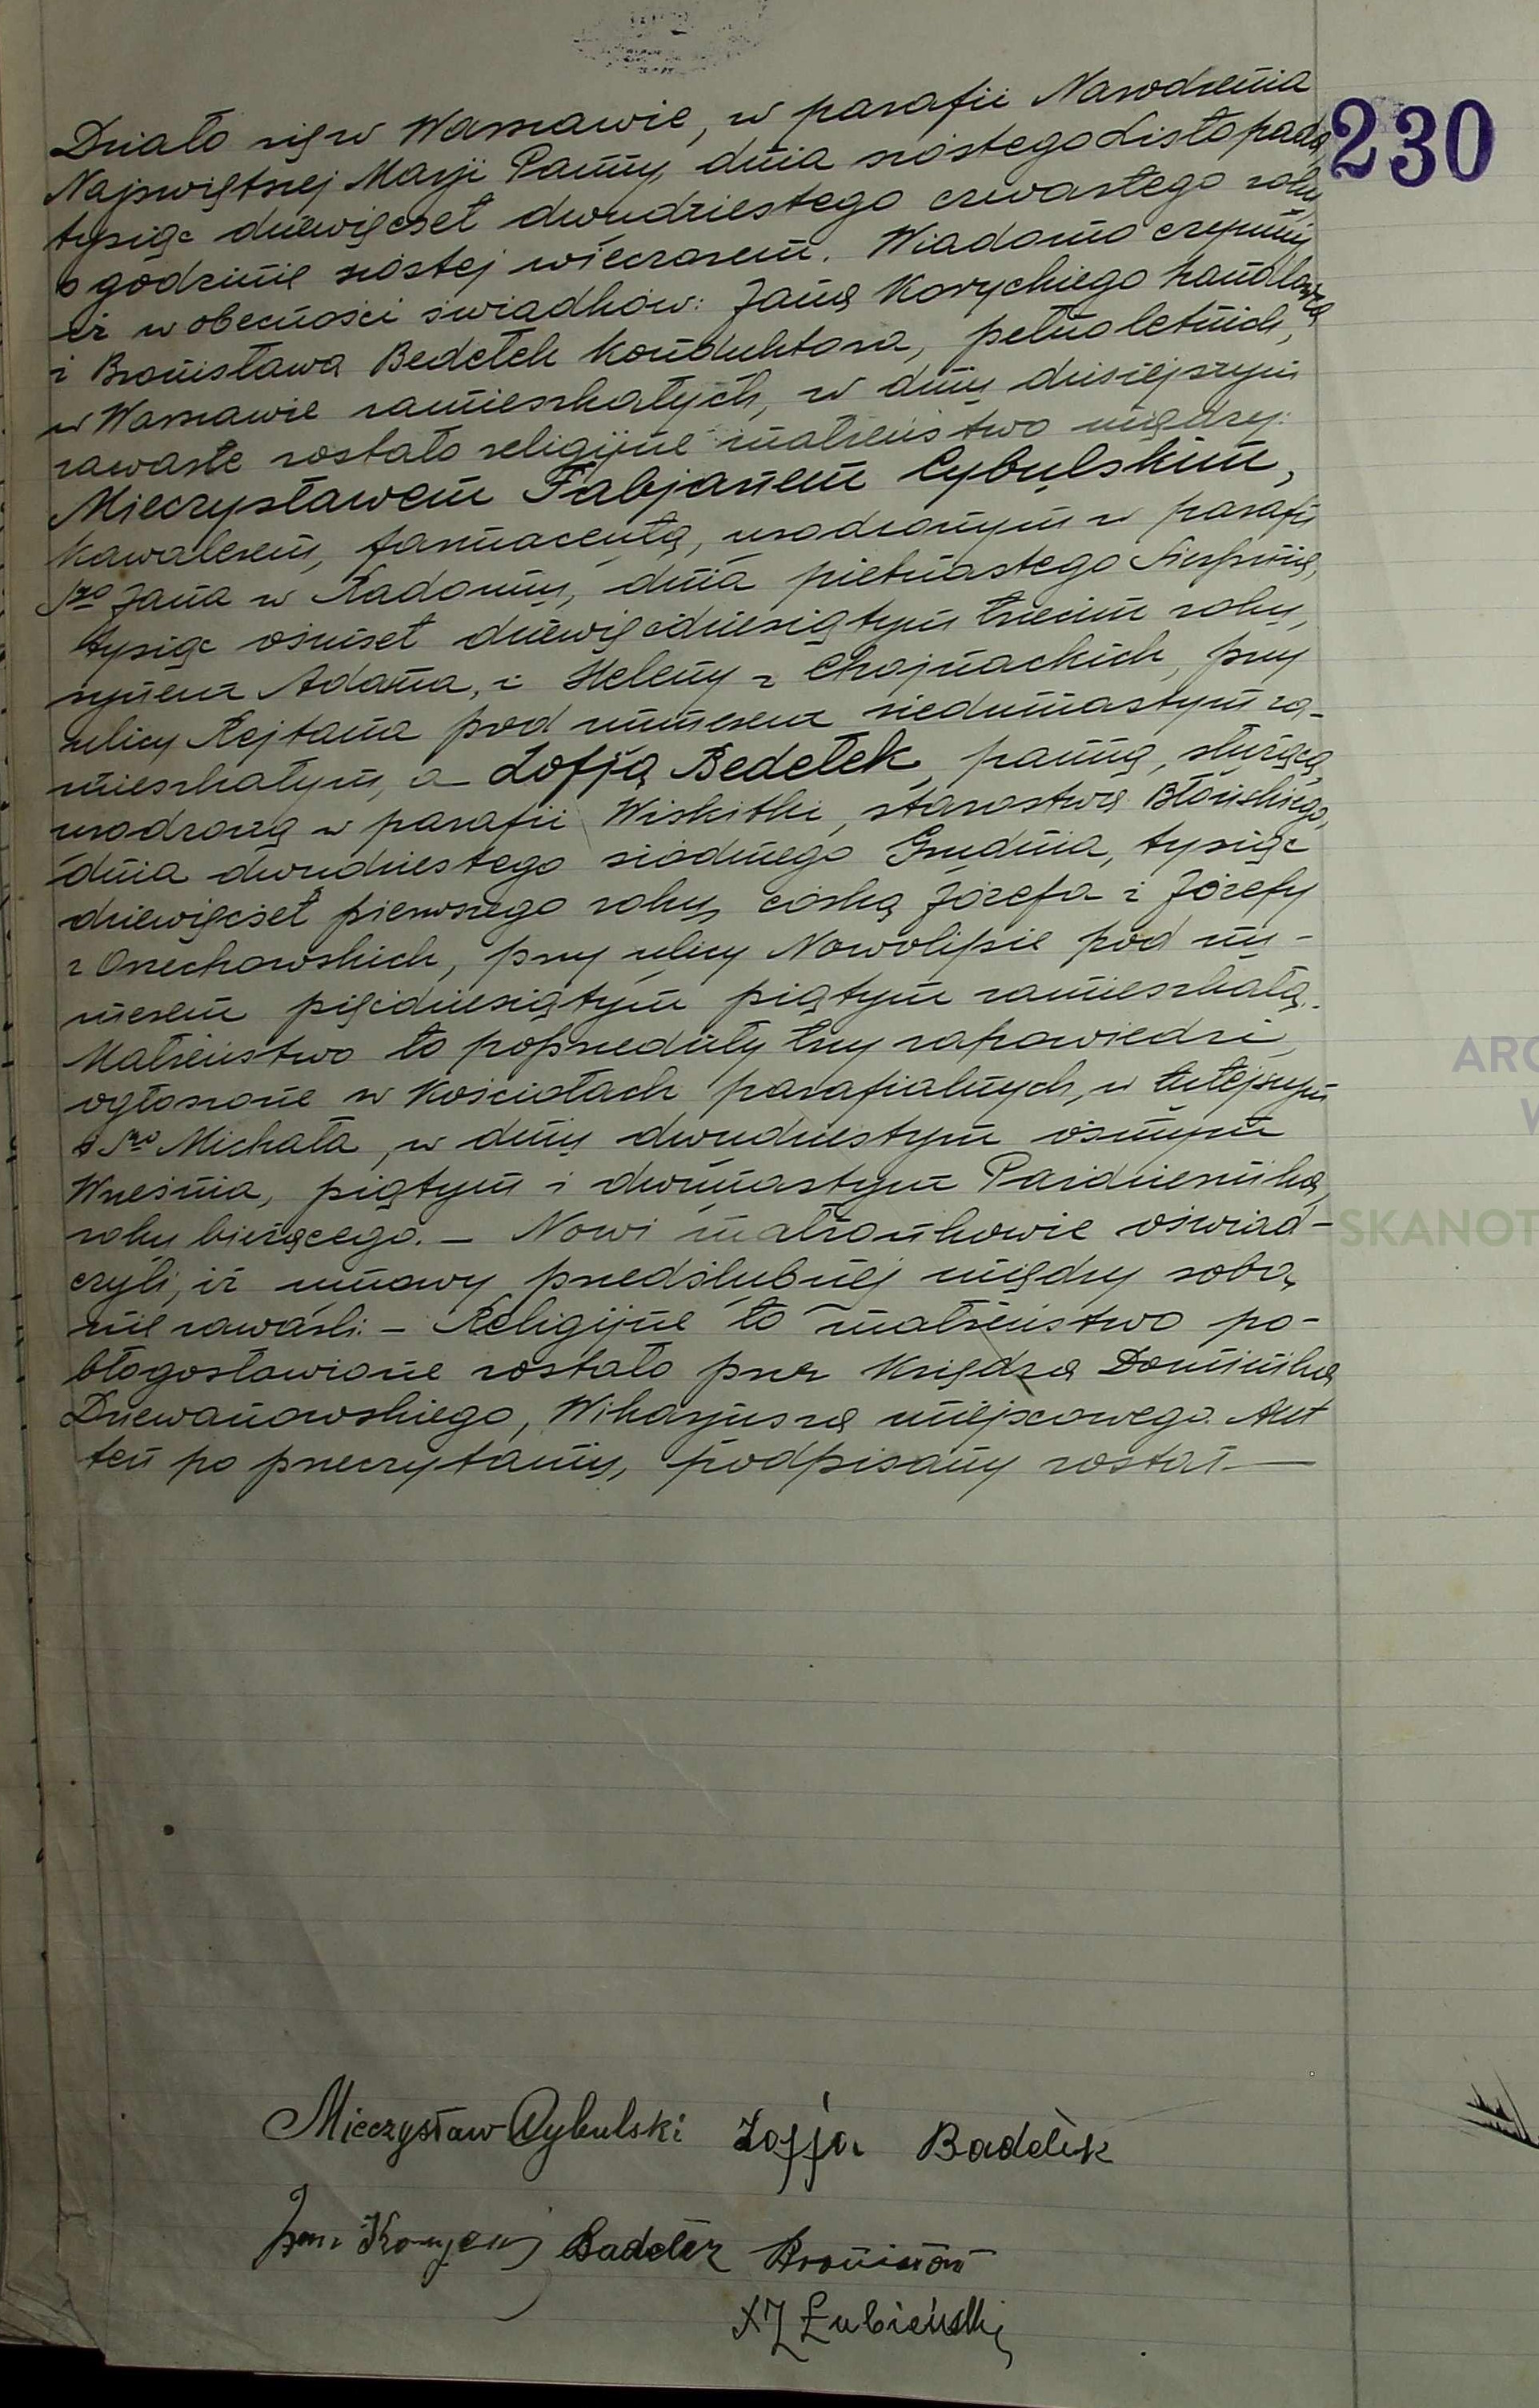 230
Działo się w Warszawie, w parafii Narodzenia
Najświętszej Marji Panny, dnia szóstego Listopada
tysiąc dziewięćset dwudziestego czwartego roku,
o godzinie szóstej wieczorem. Wiadomo czynimy
iż w obecności świadków: Jana Koryckiego handlowca
i Bronisława Bedełek konduktora, pełnoletnich,
w Warszawie zamieszkałych, w dniu dzisiejszym
zawarte zostało religijne małżeństwo między:
Mieczysławem Fabjanem Cybulskim,
kawalerem, farmaceutą, urodzonym w parafii
Śgo Jana w Radomiu, dnia piętnastego Sierpnia,
tysiąc ośmset dziewięćdziesiątym trzecim roku,
synem Adama, i Heleny z Chojnackich, przy
ulicy Rejtana pod numerem siedmnastym za-
mieszkałym, a Zofją Bedełek, panną, służącą,
urodzoną w parafii Wiskitki, starostwa Błońskiego,
dnia dwudziestego siódmego Grudnia, tysiąc
dziewięćset pierwszego roku, córką Józefa i Józefy
z Orzechowskich, przy ulicy Nowolipie pod nu-
merem pięćdziesiątym piątym zamieszkałą.
Małżeństwo to poprzedziły trzy zapowiedzi,
ogłoszone w Kościołach parafialnych, w tutejszym
i Śgo Michała, w dniu dwudziestym ósmym
Września, piątym i dwunastym Października,
roku bieżącego. – Nowi małżonkowie oświad-
czyli, iż umowy przedślubnej między sobą
nie zawarli. – Religijne to małżeństwo po-
błogosławione zostało przez Księdza Dominika
Dziewanowskiego, Wikaryusza miejscowego. Akt
ten po przeczytaniu, podpisany został. —
Mieczysław Cybulski Zofja Badelek
Jan Korycki Badelek Bronisław
X J Łubieński
ARC
W
SKANOT